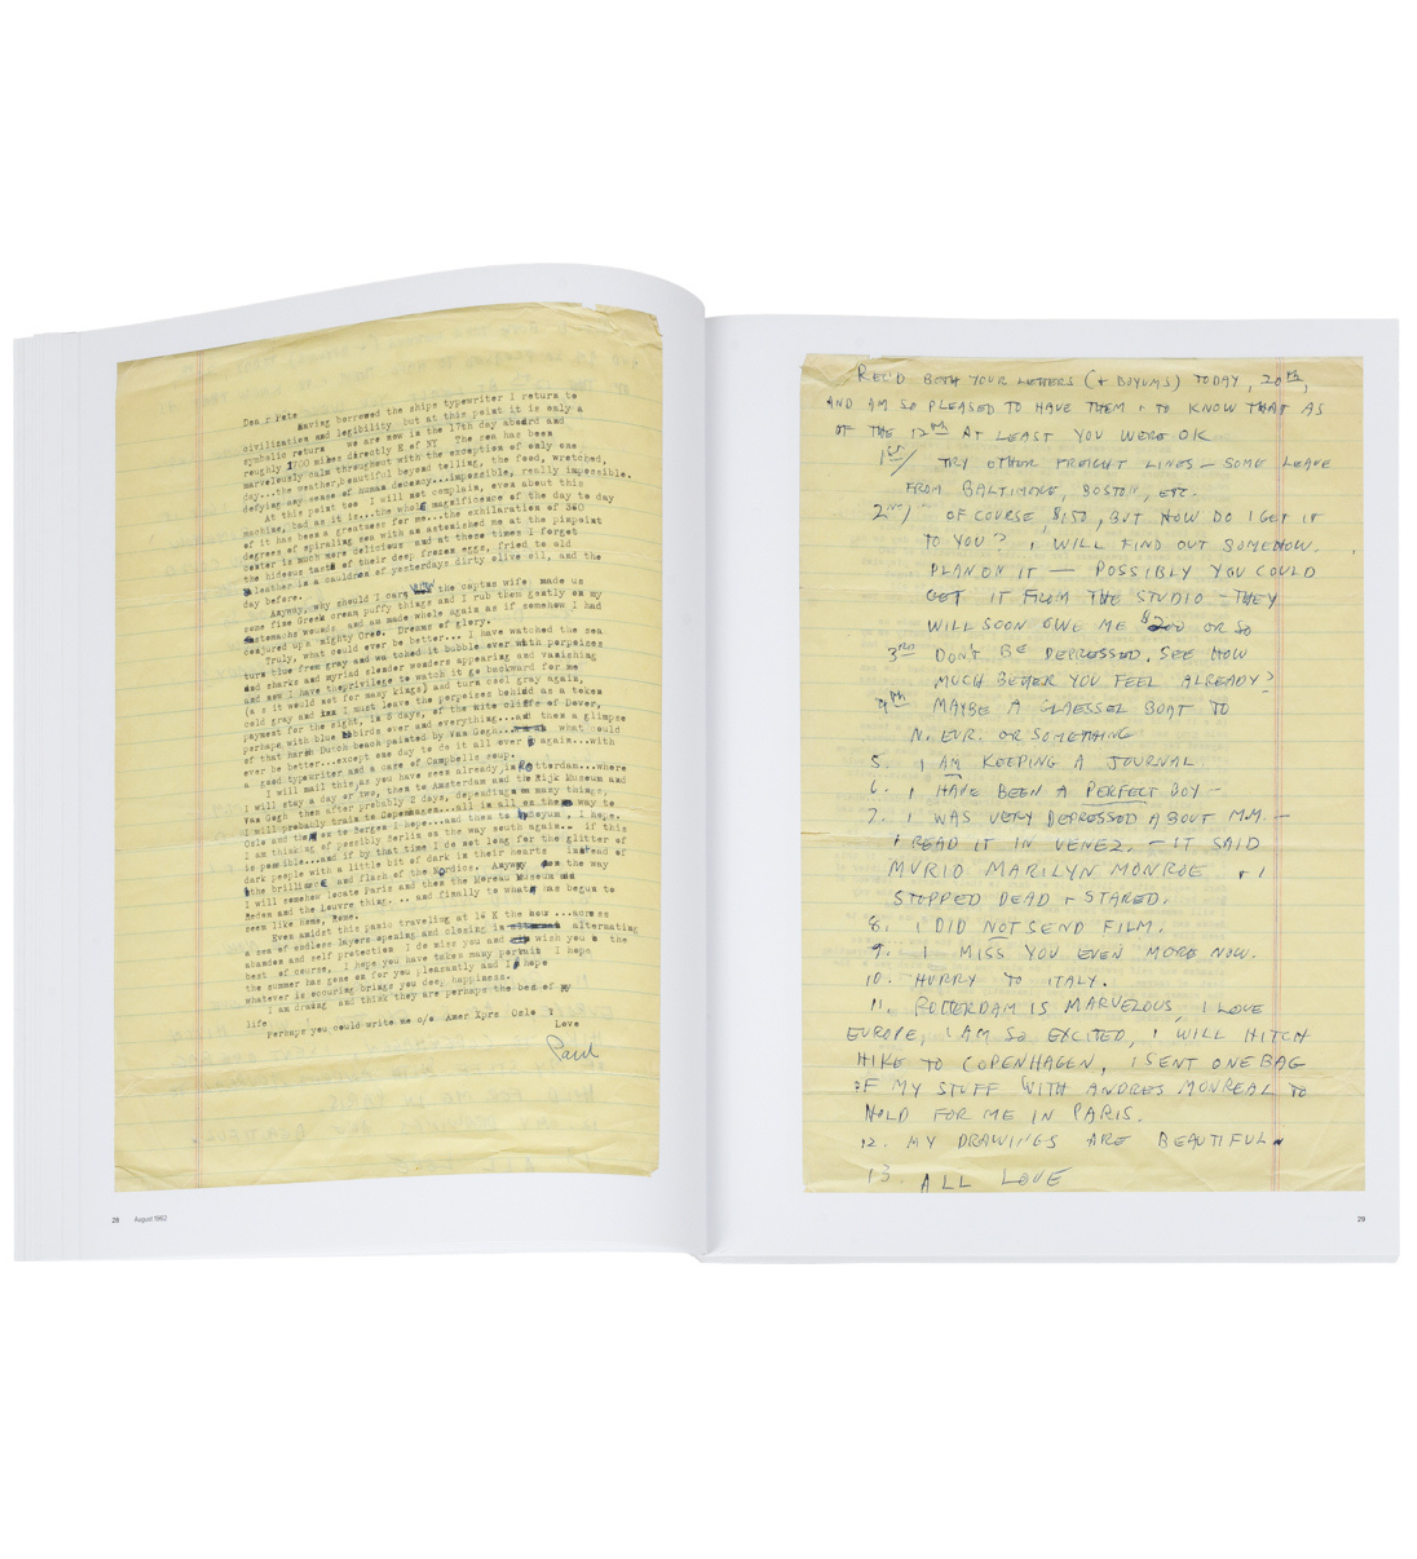 Dea r Pete
Having borrowed the ships typewriter I return to
civilization and legibility but at this point it is only a
symbolic return we are now in the 17th day aboard and
roughly 1700 miles directly E of NY The sea has been
marvelously calm throughout with the exception of only one
day...the weather,beautiful beyond telling, the food, wretched,
defying any sense of human decency...impossible, really impossible.
At this point too I will not complain, even about this
machine, bad as it is...the whole magnificence of the day to day
of it has been a greatness for me...the exhilaration of 360
degrees of spiraling sea with an astonished me at the pinpoint
center is much more delicious and at these times I forget
the hideous taste of their deep frozen eggs, fried to old
leather in a cauldron of yesterdays dirty olive oil, and the
day before.
Anyway, why should I care the captns wife, made us
some fine Greek cream puffy things and I rub them gently on my
stomachs wounds and am made whole again as if somehow I had
conjured up a mighty Oreo. Dreams of glory.
Truly, what could ever be better... I have watched the sea
turn blue from gray and wa tched it bubble over with porpoises
and sharks and myriad slender wonders appearing and vanishing
and now I have theprivilege to watch it go backward for me
(a s it would not for many kings) and turn cool gray again,
cold gray and I must leave the porpoises behind as a token
payment for the sight, in 5 days, of the wite cliffs of Dover,
perhaps with blue birds over and everything...and then a glimpse
of that harsh Dutch beach painted by Van Gogh... what could
ever be better...except one day to do it all over again...with
a good typewriter and a case of Campbells soup.
I will mail this,as you have seen already,in Rotterdam...where
I will stay a day or two, then to Amsterdam and the Rijk Museum and
Van Gogh then after probably 2 days, depending on many things,
I will probably train to Copenhagen...all in all on the way to
Oslo and then on to Bergen I hope...and then to , I hope.
I am thinking of possibly Berlin on the way south again... if this
is possible...and if by that time I do not long for the glitter of
dark people with a little bit of dark in their hearts instead of
the brilliance and flash of the Nordics. Anyway on the way
I will somehow locate Paris and then the Moreau Museum and
Redon and the Louvre thing. .. and finally to what has begun to
seem like home, Rome.
Even amidst this panic traveling at 16 K the hour ...across
a sea of endless layers opening and closing in alternating
abandon and self protection I do miss you and wish you the
best of course, I hope you have taken many portrait I hope
the summer has gone on for you pleasantly and I hope
whatever is occuring brings you deep happiness.
I am drwing and think they are perhaps the best of my
life
Perhaps you could write me c/o Amer Xprs Oslo ?
Love
Paul
28 August 1962
REC'D BOTH YOUR LETTERS (+ BOYUMS) TODAY, 20TH,
AND AM SO PLEASED TO HAVE THEM + TO KNOW THAT AS
OF THE 12TH AT LEAST YOU WERE OK
1ST/ TRY OTHER FREIGHT LINES — SOME LEAVE
FROM BALTIMORE, BOSTON, ETC.
2ND/ OF COURSE $150, BUT HOW DO I GET IT
TO YOU? I WILL FIND OUT SOMEHOW.
PLAN ON IT — POSSIBLY YOU COULD
GET IT FROM THE STUDIO — THEY
WILL SOON OWE ME $200 OR SO
3RD DON'T BE DEPRESSED. SEE HOW
MUCH BETTER YOU FEEL ALREADY?
4TH MAYBE A BOAT TO
N. EUR. OR SOMETHING
5. I AM KEEPING A JOURNAL.
6. I HAVE BEEN A PERFECT BOY —
7. I WAS VERY DEPRESSED ABOUT M.M. —
I READ IT IN VENEZ. — IT SAID
MURIO MARILYN MONROE + I
STOPPED DEAD + STARED.
8. I DID NOT SEND FILM.
9. I MISS YOU EVEN MORE NOW.
10. HURRY TO ITALY.
11. ROTTERDAM IS MARVELOUS, I LOVE
EUROPE, I AM SO EXCITED, I WILL HITCH
HIKE TO COPENHAGEN, I SENT ONE BAG
OF MY STUFF WITH ANDRES MONREAL TO
HOLD FOR ME IN PARIS.
12. MY DRAWINGS ARE BEAUTIFUL.
13. ALL LOVE
29